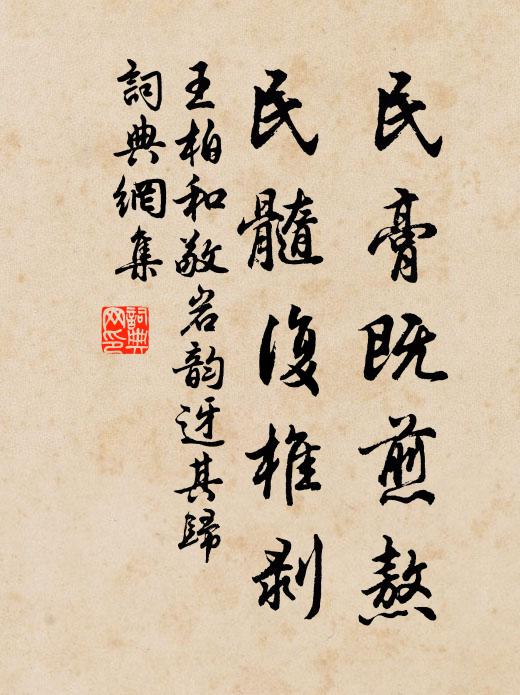 民膏既煎熬
民髓復椎剥
王柏和敬岩韵迓其歸
詞典網集
詞典网印